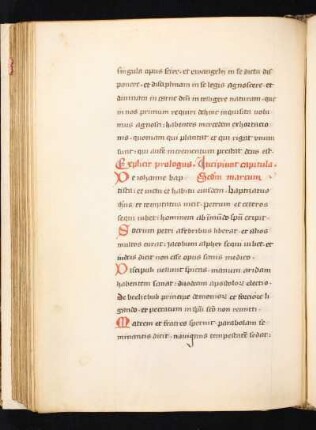 singula opus scire. et ewangelij in se dicta dis
ponere. et disciplinam in se legis agnoscere. et
diuinam in carne dn̄i intelligere naturam. que
in nos primum requiri dehinc inquisita volu
mus agnosci. habentes mercedem exhortatio
nis. quoniam qui plantat et qui rigat vnum
sunt. qui autē incrementum prestat deus est.
Explicit prologus. Incipiunt capitula
De iohanne bap Scd̄m marcum.
tista. et victu et habitu eiusdem. baptizatus
ihūs. et temptatus uicit. petrum et ceteros
sequi iubet. hominem ab īmūdo spū eripit.
Socrum petri a febribus liberat. et alios
multos curat. iacobum alphei sequi iubet. et
iudeis dicit non esse opus sanis medico.
Discipuli vellunt spicas. manum aridam
habentem sanat. duodecim apostolos elegit.
de beelzebub principe demoniorum et fortiore li
gando. et peccatum in spm̄ scm̄ non remitti.
Matrem et fratres spernit. parabolam se
minantis dicit. nauigans tempestatem sedat.